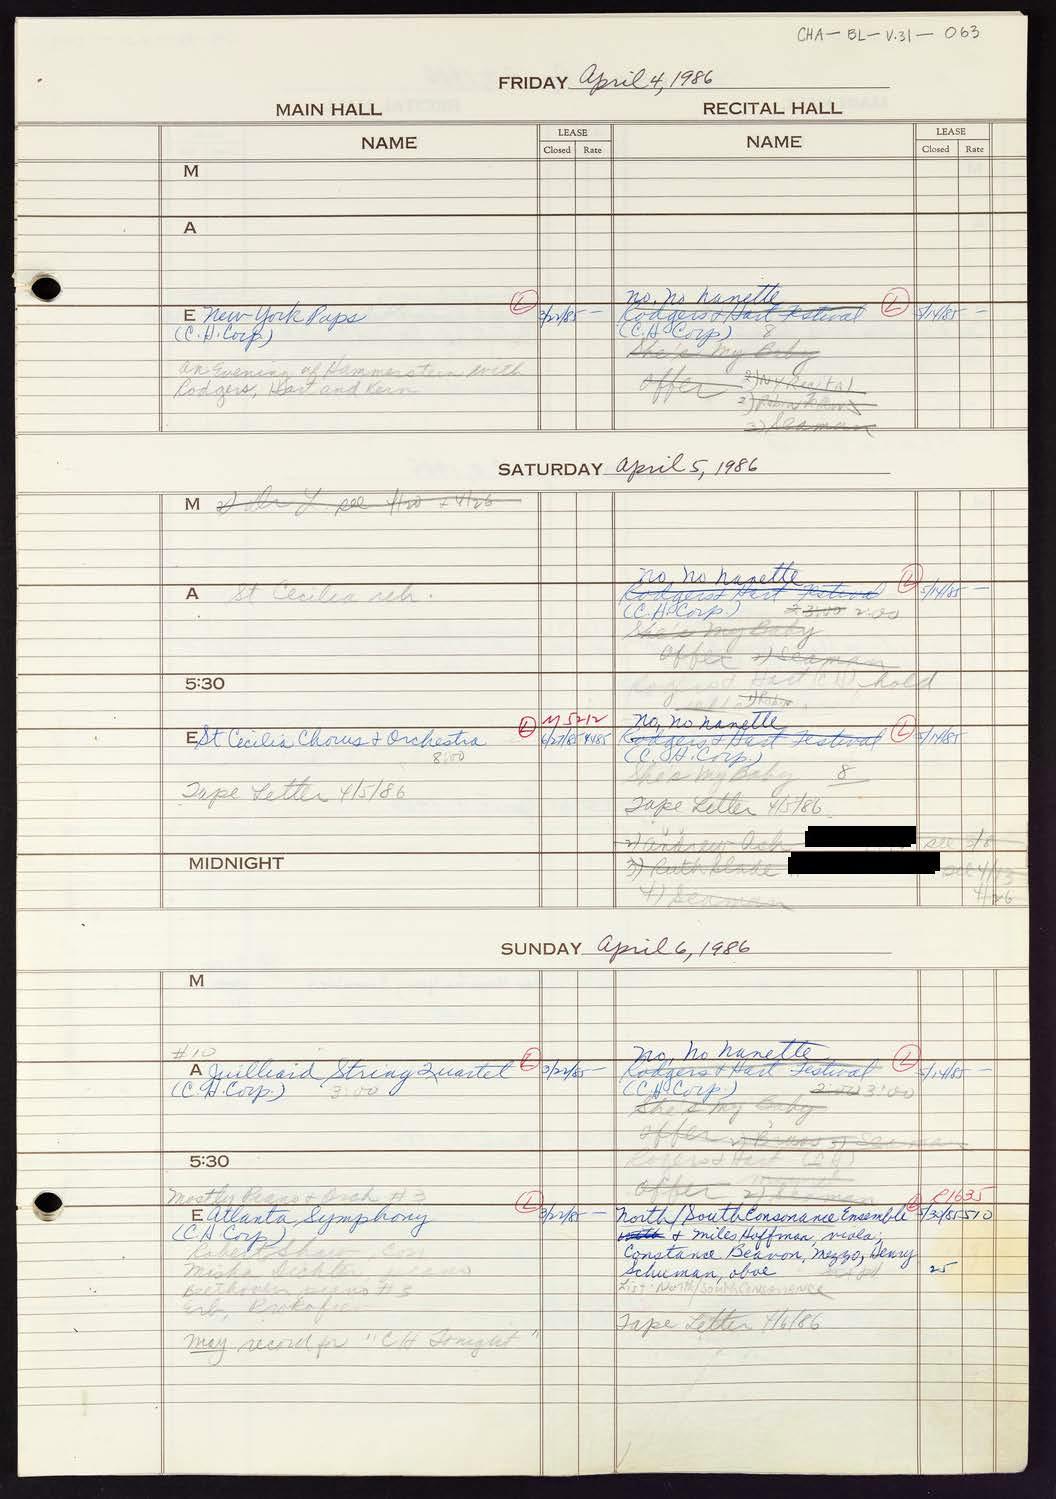 CHA-BL-V.31-063
FRIDAY April 4, 1986
MAIN HALL
RECITAL HALL
NAME
LEASE
Closed Rate
NAME
LEASE
Closed Rate
M
A
E New York Pops
(C.H. Corp)
L
3/22/85 —
An Evening of Hammerstein with
Rodgers, Hart and Kern
no, no nanette
Rodgers & Hart Festival
(C.H. Corp) 8
L
5/14/85 —
She's My Baby
offer 2) NY Recital
2)
3) Seaman
SATURDAY April 5, 1986
M 2) Dr L. see 4/20 + 4/26
A St Cecilia reh.
no, no nanette
Rodgers & Hart Festival
(C.H. Corp.) 3:00 2:00
L
5/14/85 —
She's My Baby
offer 2) Seaman
5:30
Rogers & Hart (CH) hold
E St Cecilia Chorus & Orchestra
8:00
L
M 5212
6/27/85 4485
Tape Letter 4/5/86
no, no nanette
Rodgers & Hart Festival
(C.H. Corp.)
L
5/14/85
She's My Baby 8
Tape Letter 4/5/86
2) Andrew Ash see
MIDNIGHT
3) Ruth Slade see 4/13
4/26
4) Seaman
SUNDAY April 6, 1986
M
#10
A Juilliard String Quartet
(C.H. Corp.) 3:00
L
3/22/85 —
no, no nanette
Rodgers & Hart Festival
(C.H. Corp.) 2:00 3:00
L
5/14/85 —
She's My Baby
offer 2) 3) Seaman
5:30
Rogers & Hart (CH)
offer 2) Seaman
Mostly Piano & Orch #3
E Atlanta Symphony
(C.H. Corp)
L
3/22/85 —
Robert Shaw, Con
Misha Dichter, piano
Beethoven piano #3
Erb, Prokofiev
May record for "CH Tonight"
North/South Consonance Ensemble
& Miles Hoffman, viola;
Constance Beavon, Mezzo, Henry
Schuman, oboe
L
R1635
5/30/85 510
25
List: North/South Consonance
Tape Letter 4/6/86